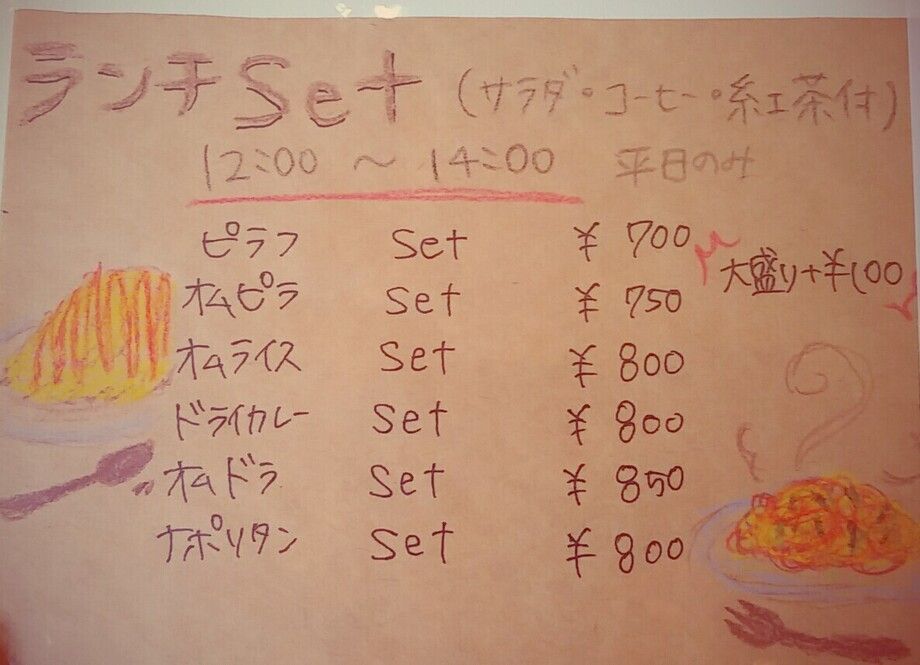 ランチSet (サラダ・コーヒー・紅茶付)
12:00 〜 14:00 平日のみ
ピラフ Set ¥ 700
大盛り+¥100
オムピラ Set ¥ 750
オムライス Set ¥ 800
ドライカレー Set ¥ 800
オムドラ Set ¥ 850
ナポリタン Set ¥ 800